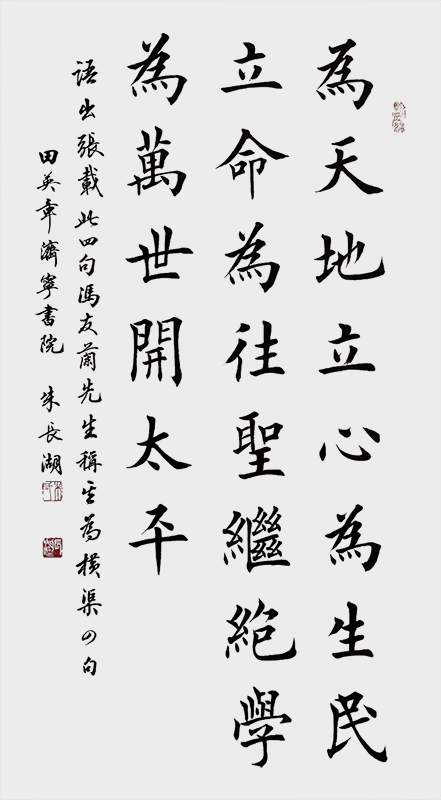 為天地立心為生民
立命為往聖繼絶學
為萬世開太平
語出張載此四句馮友蘭先生稱其為橫渠四句
田英章濟寧書院 朱長湖